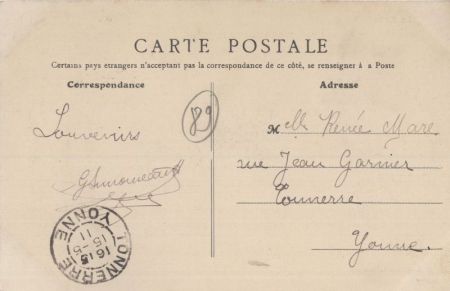 CARTE POSTALE
Certains pays etrangers n'acceptant pas la correspondance de ce côté, se renseigner à a Poste
Correspondance
Adresse
Souvenirs
89
M elle Renée Mare
rue Jean Garnier
Tonnerre
Yonne.
TONNERRE
YONNE
16 15
15 - 5
11